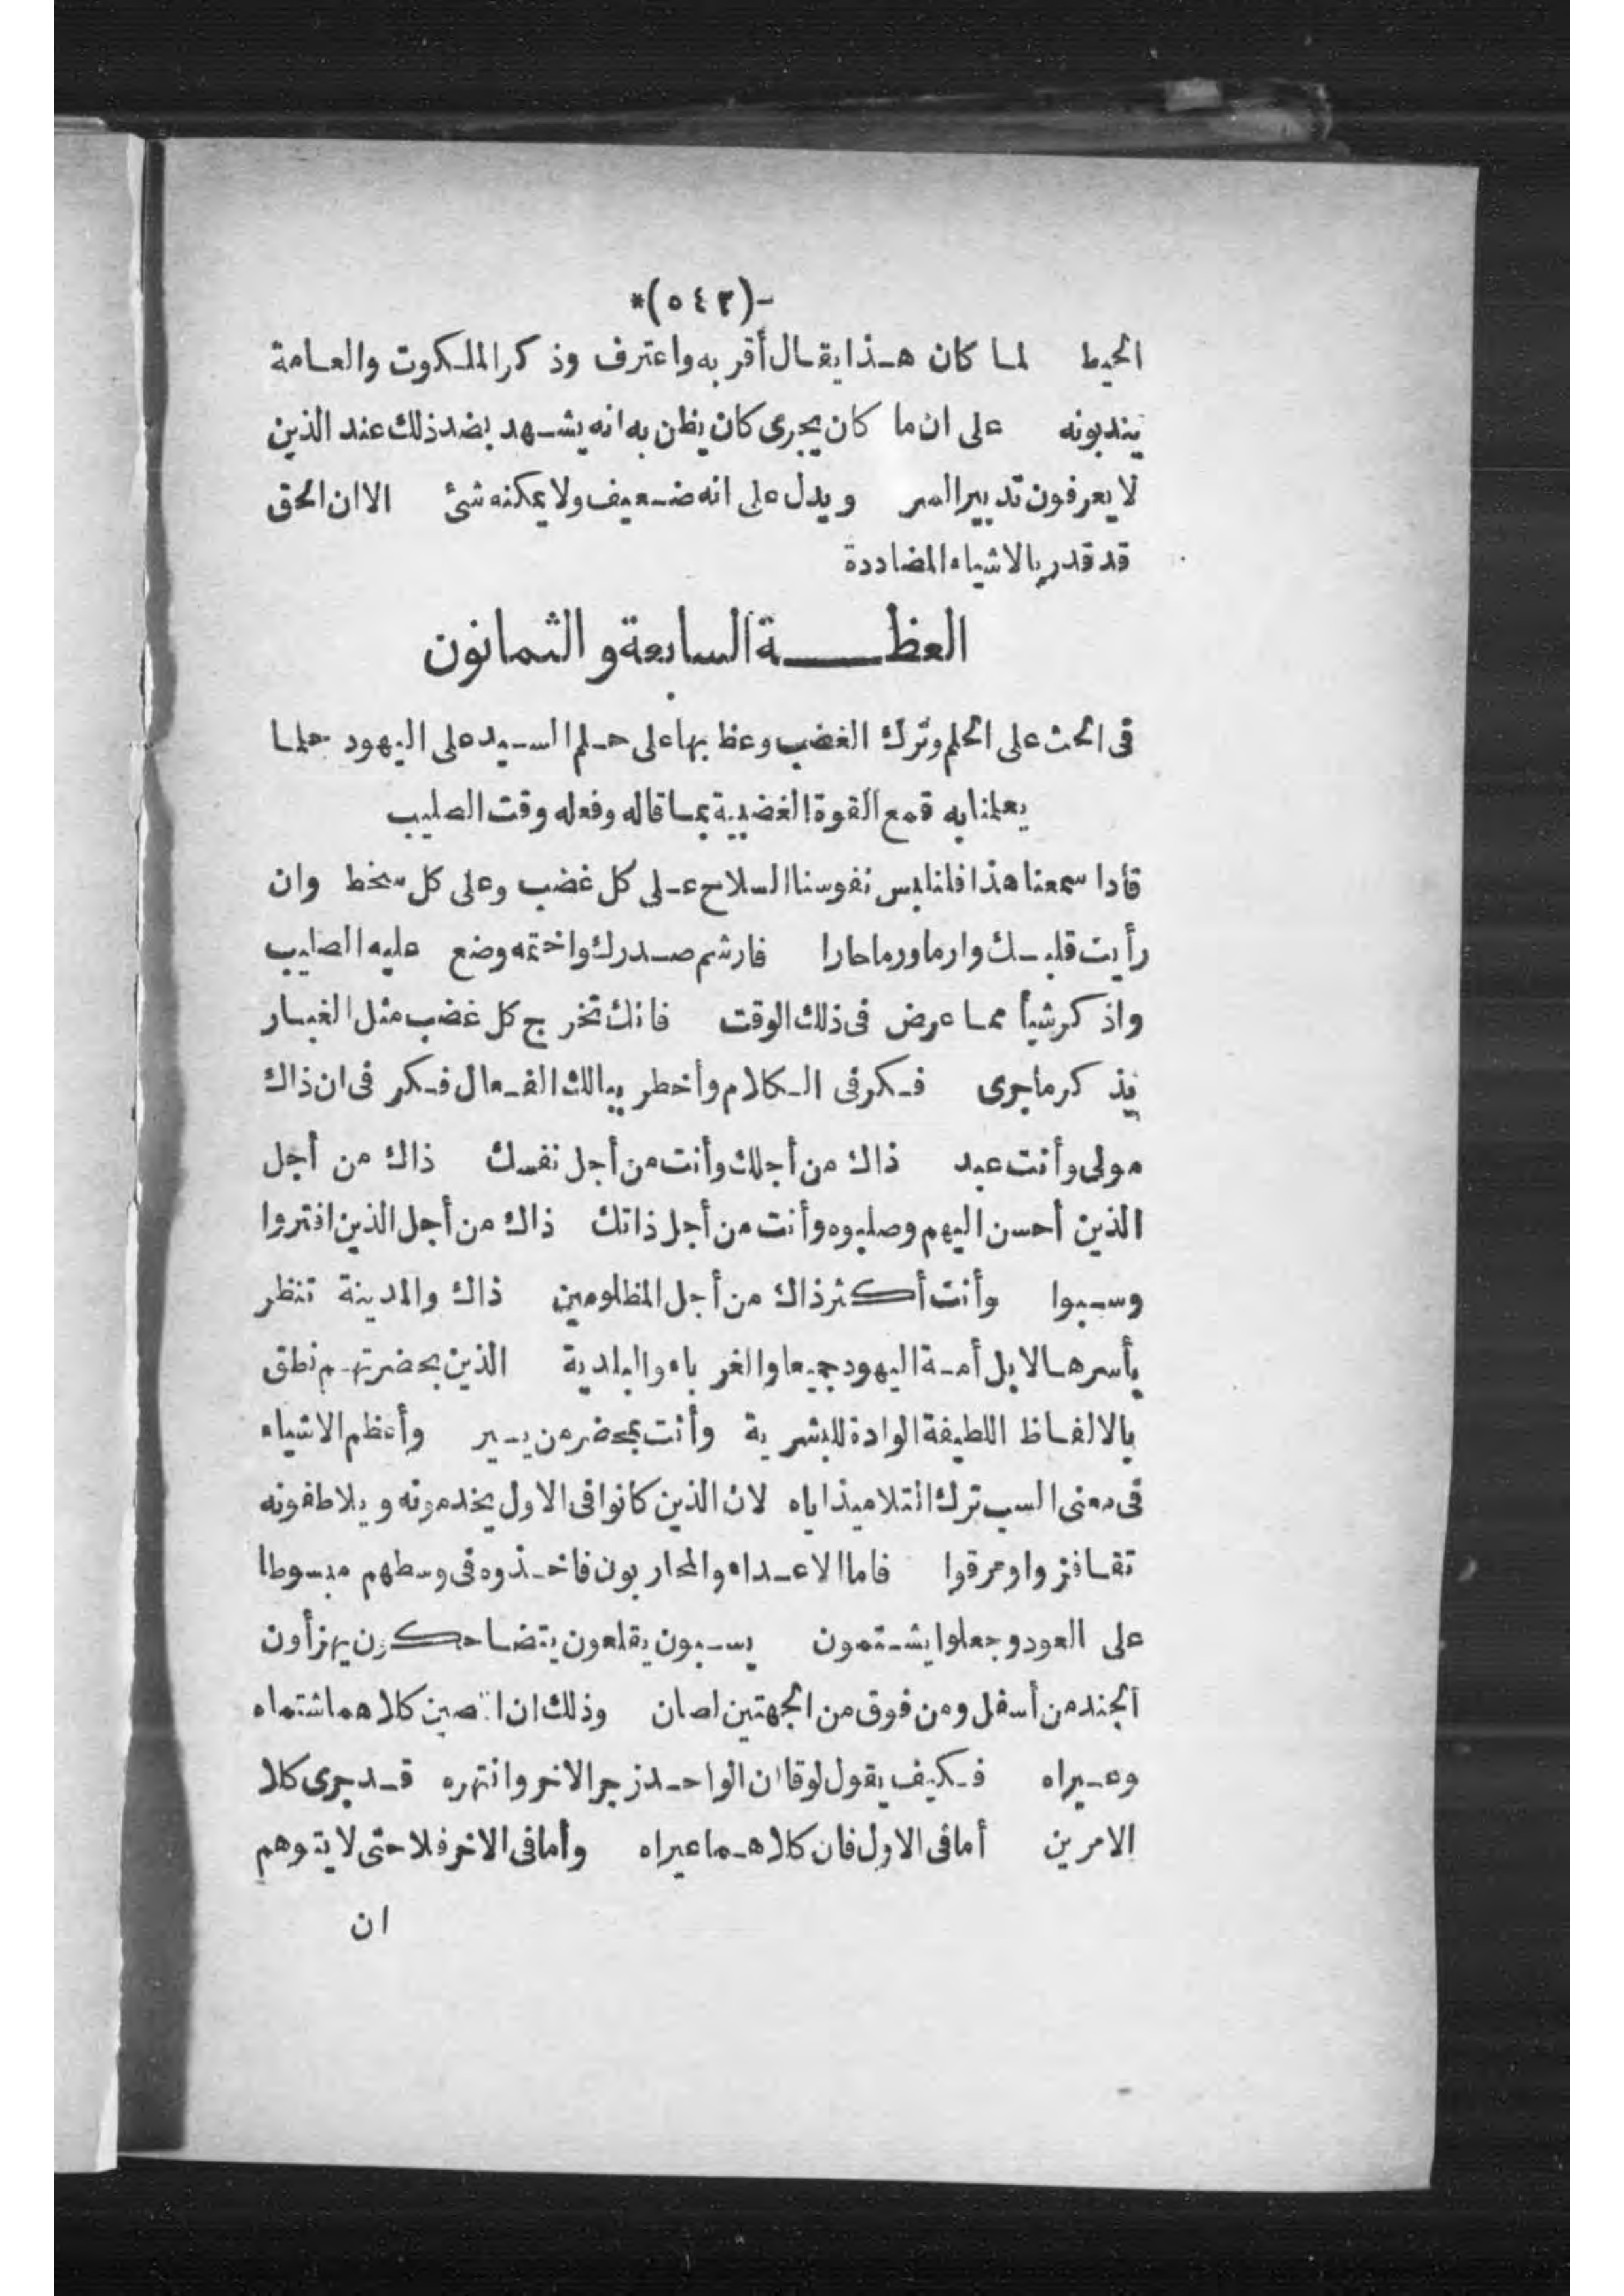 -(٥٤٣)*
الحيط لما كان هذا يقال أقر به واعترف وذكر الملكوت والعامة
يندبونه على ان ما كان يجرى كان يظن به انه يشهد بضد ذلك عند الذين
لا يعرفون تدبير السر ويدل على انه ضعيف ولا يمكنه شئ الا ان الحق
قد قدر بالاشياء المضاددة
العظة السابعة والثمانون
فى الحث على الحلم وترك الغضب وعظ بها على حلم السيد على اليهود حلما
يعلمنا به قمع القوة الغضبية بما قاله وفعله وقت الصليب
فاذا سمعنا هذا فلنلبس نفوسنا السلاح على كل غضب وعلى كل سخط وان
رأيت قلبك وارما ورما حارا فارشم صدرك واختمه وضع عليه الصليب
واذكر شيأ مما عرض فى ذلك الوقت فانك تخرج كل غضب مثل الغبار
بذكر ماجرى فكر فى الكلام وأخطر ببالك الفعال فكر فى ان ذاك
مولى وأنت عبد ذاك من أجلك وأنت من أجل نفسك ذاك من أجل
الذين أحسن اليهم وصلبوه وأنت من أجل ذاتك ذاك من أجل الذين افتروا
وسبوا وأنت أكثر ذاك من أجل المظلومين ذاك والمدينة تنظر
بأسرها لا بل أمة اليهود جميعا والغرباء والبلدية الذين بحضرتهم نطق
بالالفاظ اللطيفة الوادة للبشرية وأنت بمحضر من يسير وأعظم الاشياء
فى معنى السب ترك التلاميذ اياه لان الذين كانوا فى الاول يخدمونه ويلاطفونه
تقافزوا ومرقوا فاما الاعداء والمحاربون فاخذوه فى وسطهم مبسوطا
على العود وجعلوا يشتمون يسبون يقلعون يتضاحكون يهزأون
الجند من أسفل ومن فوق من الجهتين لصان وذلك ان اللصين كلاهما شتماه
وعيراه فكيف يقول لوقا ان الواحد زجر الاخر وانتهره قد جرى كلا
الامرين أما فى الاول فان كلاهما عيراه وأما فى الاخر فلا حتى لا يتوهم
ان